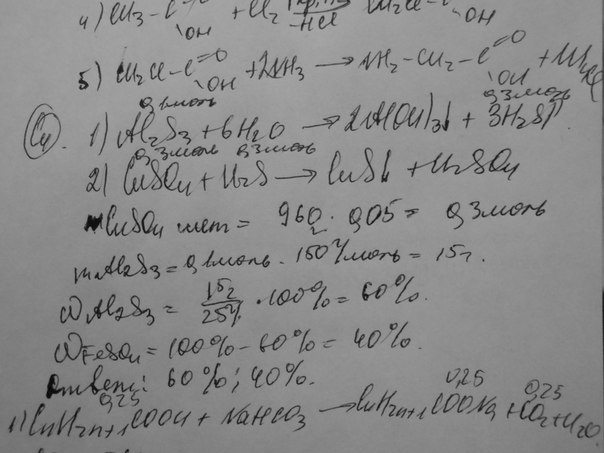 4) CH3-C=O OH + Cl2 -HCl CH2Cl-C OH
5) CH2Cl-C=O OH + 2NH3 → NH2-CH2-C=O OH + NH4Cl
0,1моль 0,3моль
C4. 1) Al2S3 + 6H2O → 2Al(OH)3↓ + 3H2S↑
0,3моль 0,3моль
2) CuSO4 + H2S → CuS↓ + H2SO4
CuSO4 = 960 · 0,05 = 0,3моль
mAl2S3 = 0,1моль · 150г/моль = 15г.
ωAl2S3 = 15г/25г · 100% = 60%.
ωFeSO4 = 100% - 60% = 40%.
Ответ: 60%; 40%.
0,25 0,25 0,25
1) CnH2n+1COOH + NaHCO3 → CnH2n+1COONa + CO2 + H2O